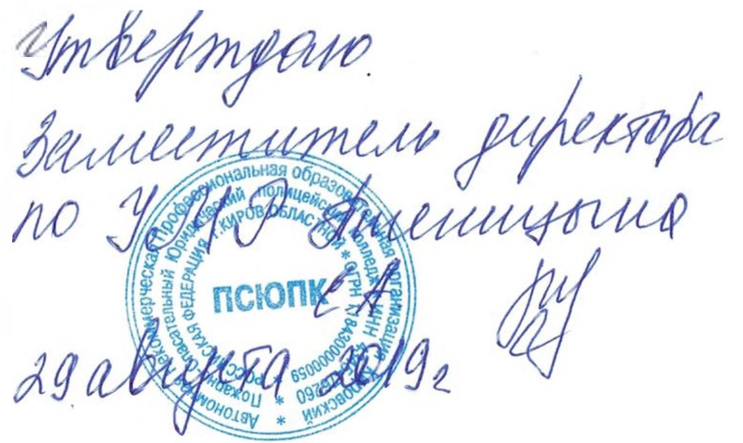 Утверждаю.
Заместитель директора
по УМР Пшеницына
Е А
29 августа 2019 г
ПСЮПК
Автономная некоммерческая профессиональная образовательная организация
Пожарно-спасательный юридический полицейский колледж * ИНН
РОССИЙСКАЯ ФЕДЕРАЦИЯ г. КИРОВ ОБЛАСТНОЙ * ОГРН